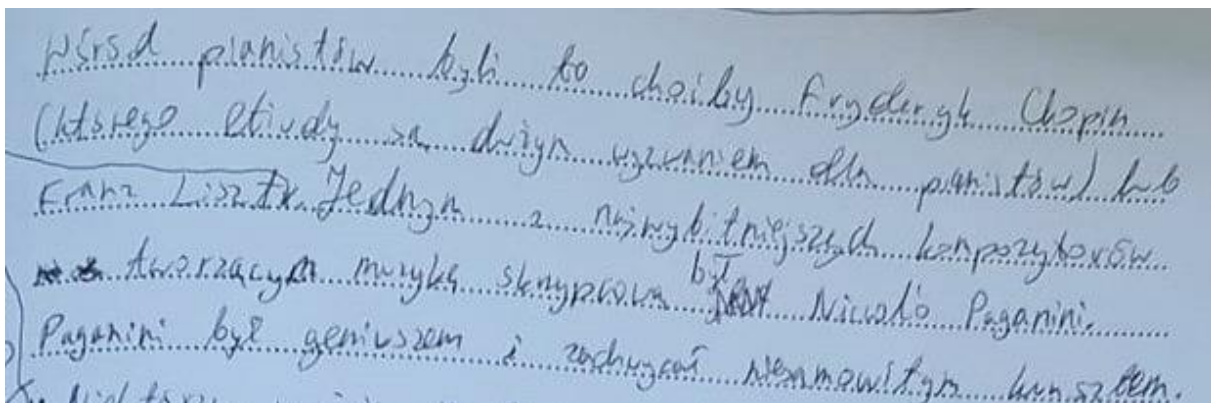 Wśród pianistów byli to choćby Fryderyk Chopin
(którego etiudy są dużym wyzwaniem dla pianistów) lub
Franz Liszt. Jednym z najwybitniejszych kompozytorów
tworzącym muzykę skrzypcową był Niccolò Paganini.
Paganini był geniuszem i zachwycał niesamowitym kunsztem.